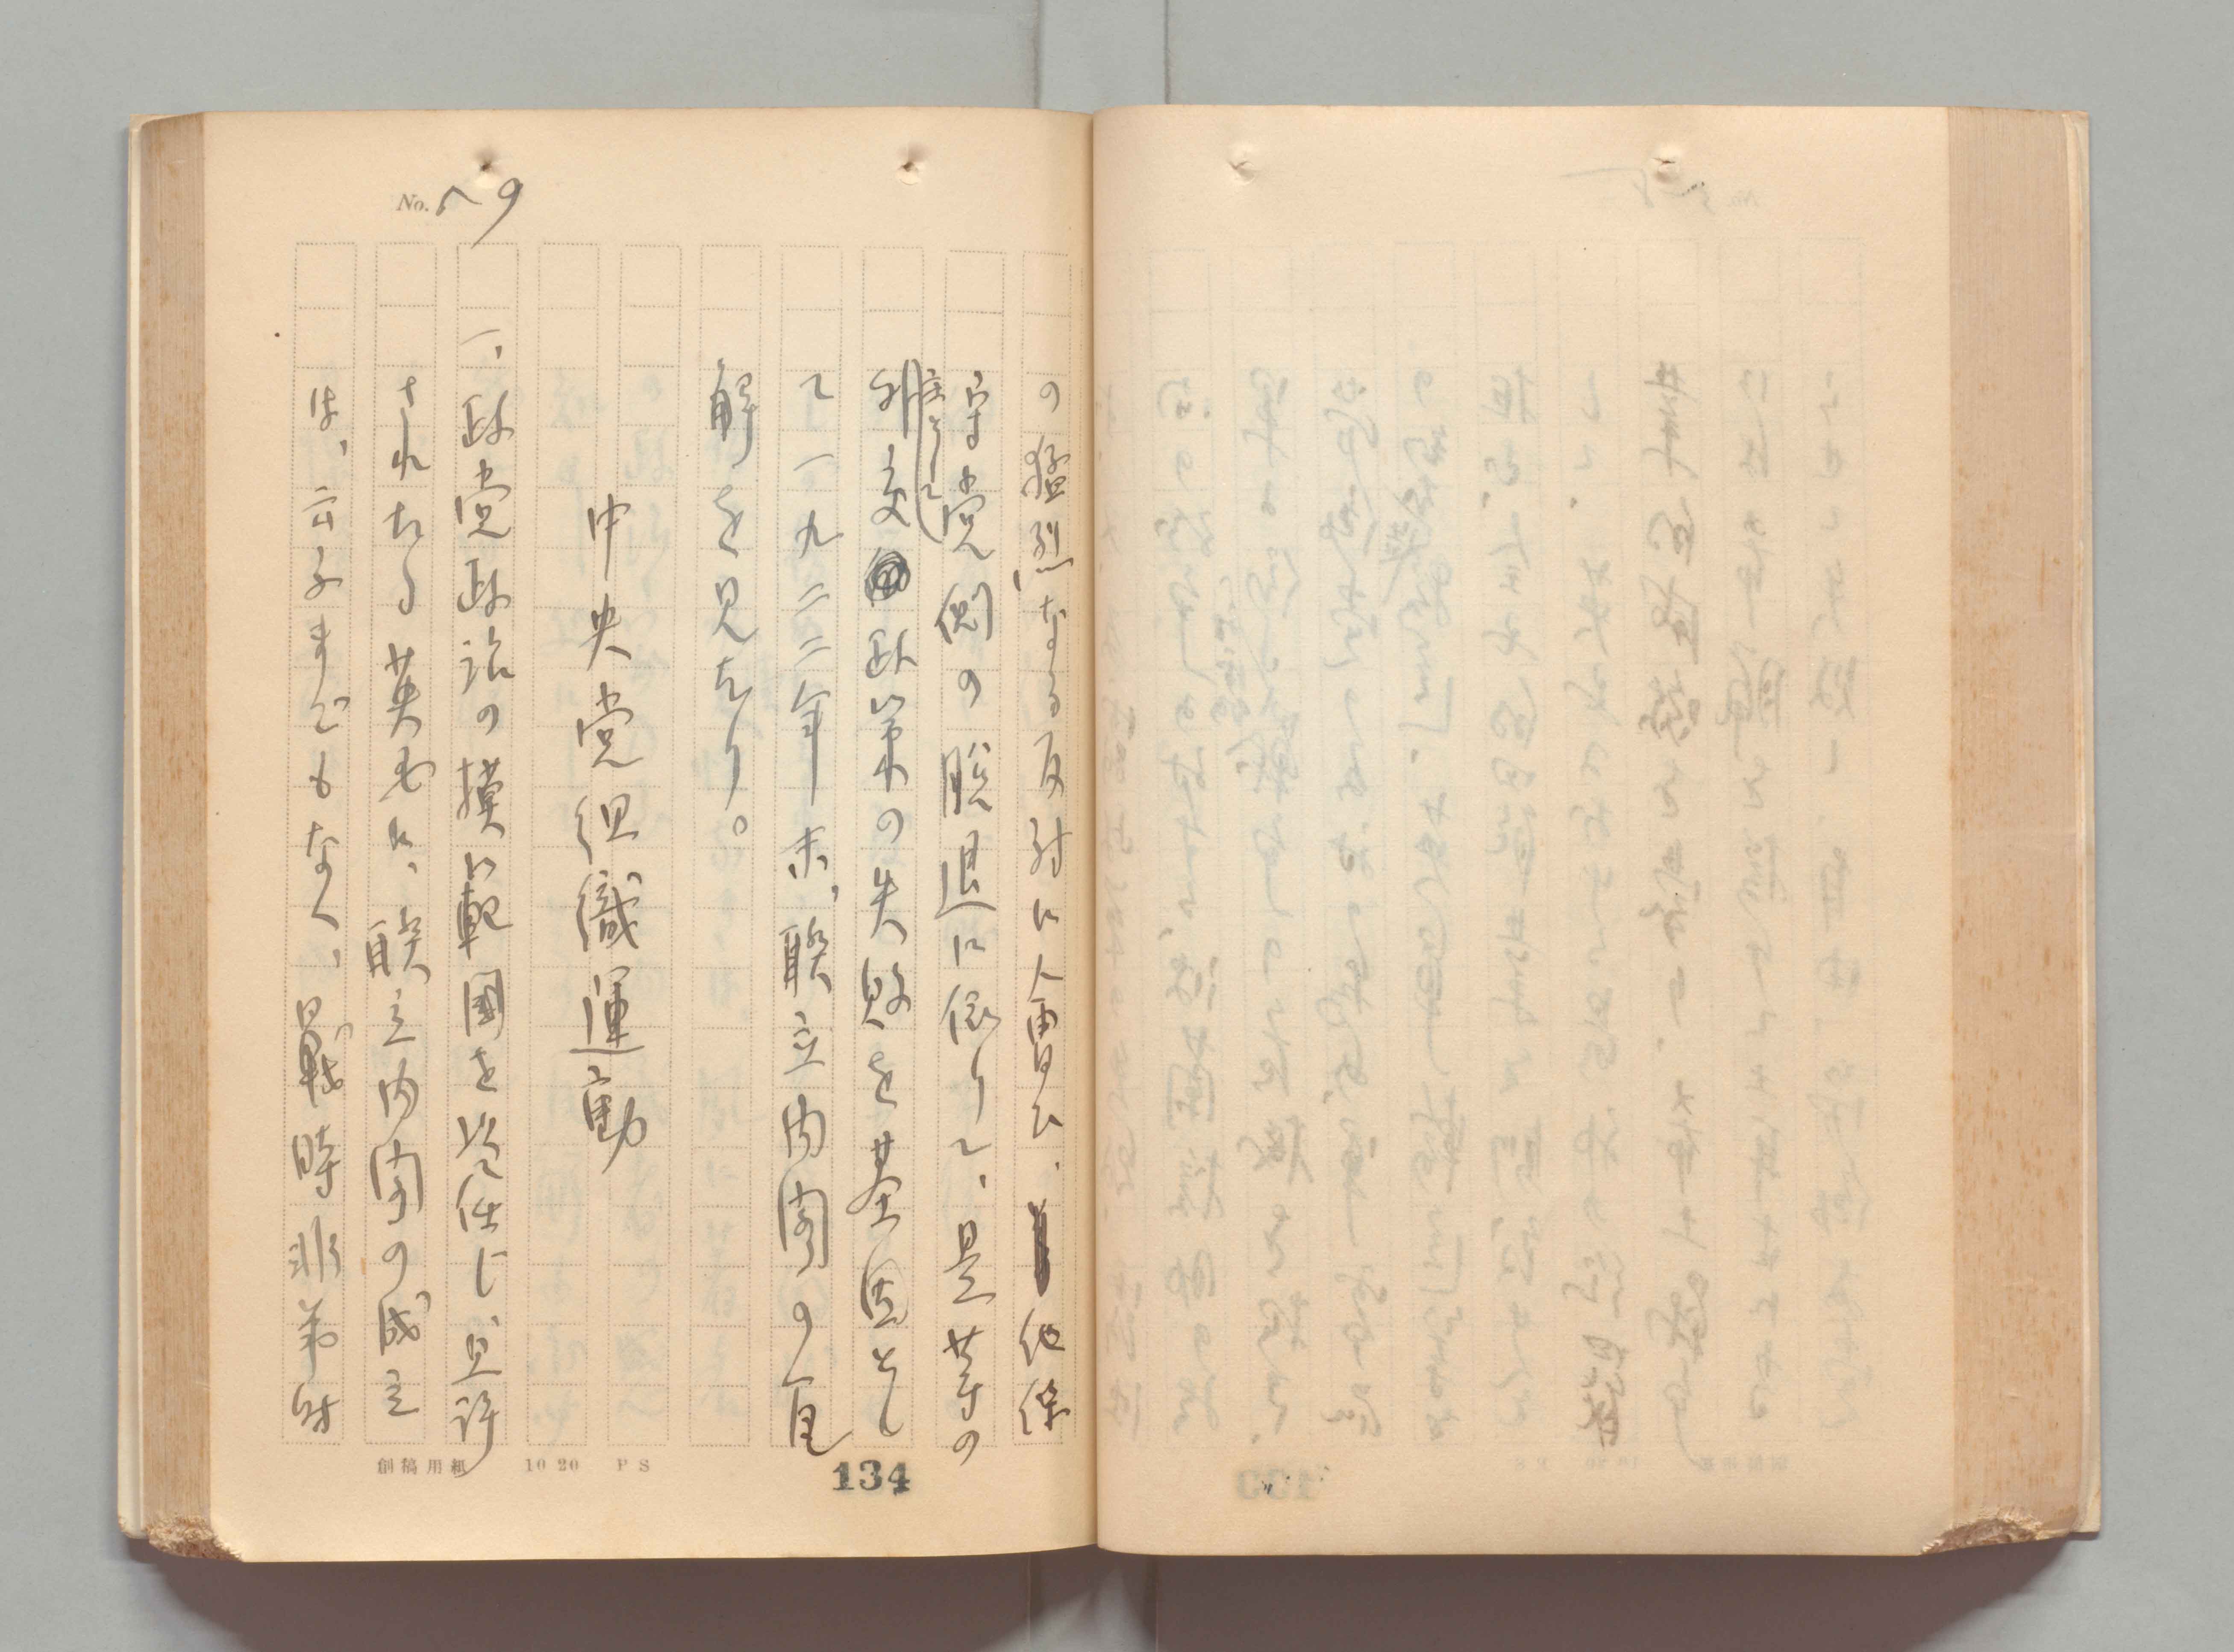 No. 59
の猛烈なる反対に会ひ、他保
守党側の脱退に依りて、是等の
主として
外交政策の失敗を基因とし
て一九二二年末、聯立内閣の瓦
解を見たり。
中央党組織運動
一、政党政治の模範国を以て任じ、且許
されたる英也に、聯立内閣の成立
は、云ふまでもなく、戦時非常時
創稿用紙 10 20 PS
134